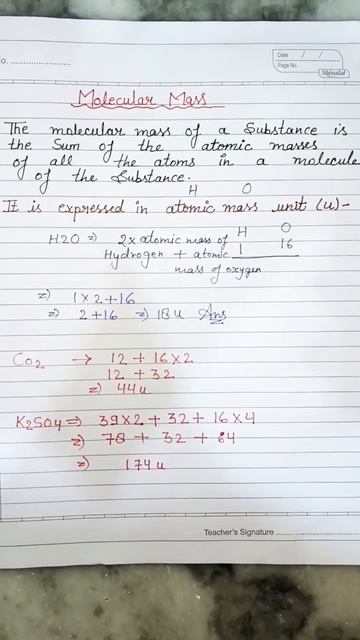 o.
Date / /
Page No.
Shivalal
Molecular Mass
The molecular mass of a Substance is
the Sum of the atomic masses
of all the atoms in a molecule
of the Substance.
H O
It is expressed in atomic mass unit (u)-
H2O => 2x atomic mass of H O
Hydrogen + atomic 1 16
mass of oxygen
=> 1x2+16
=> 2+16 => 18u Ans
Co2 → 12 + 16x2
12 + 32
=> 44u
K2SO4 => 39x2 + 32 + 16x4
=> 78 + 32 + 64
=> 174u
Teacher's Signature